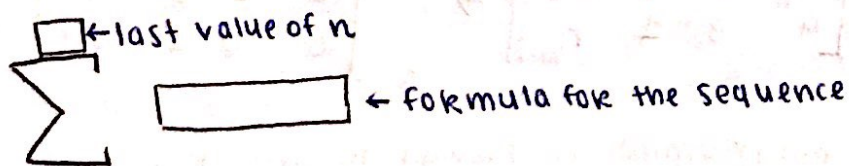 ←last value of n
Σ ← formula for the sequence